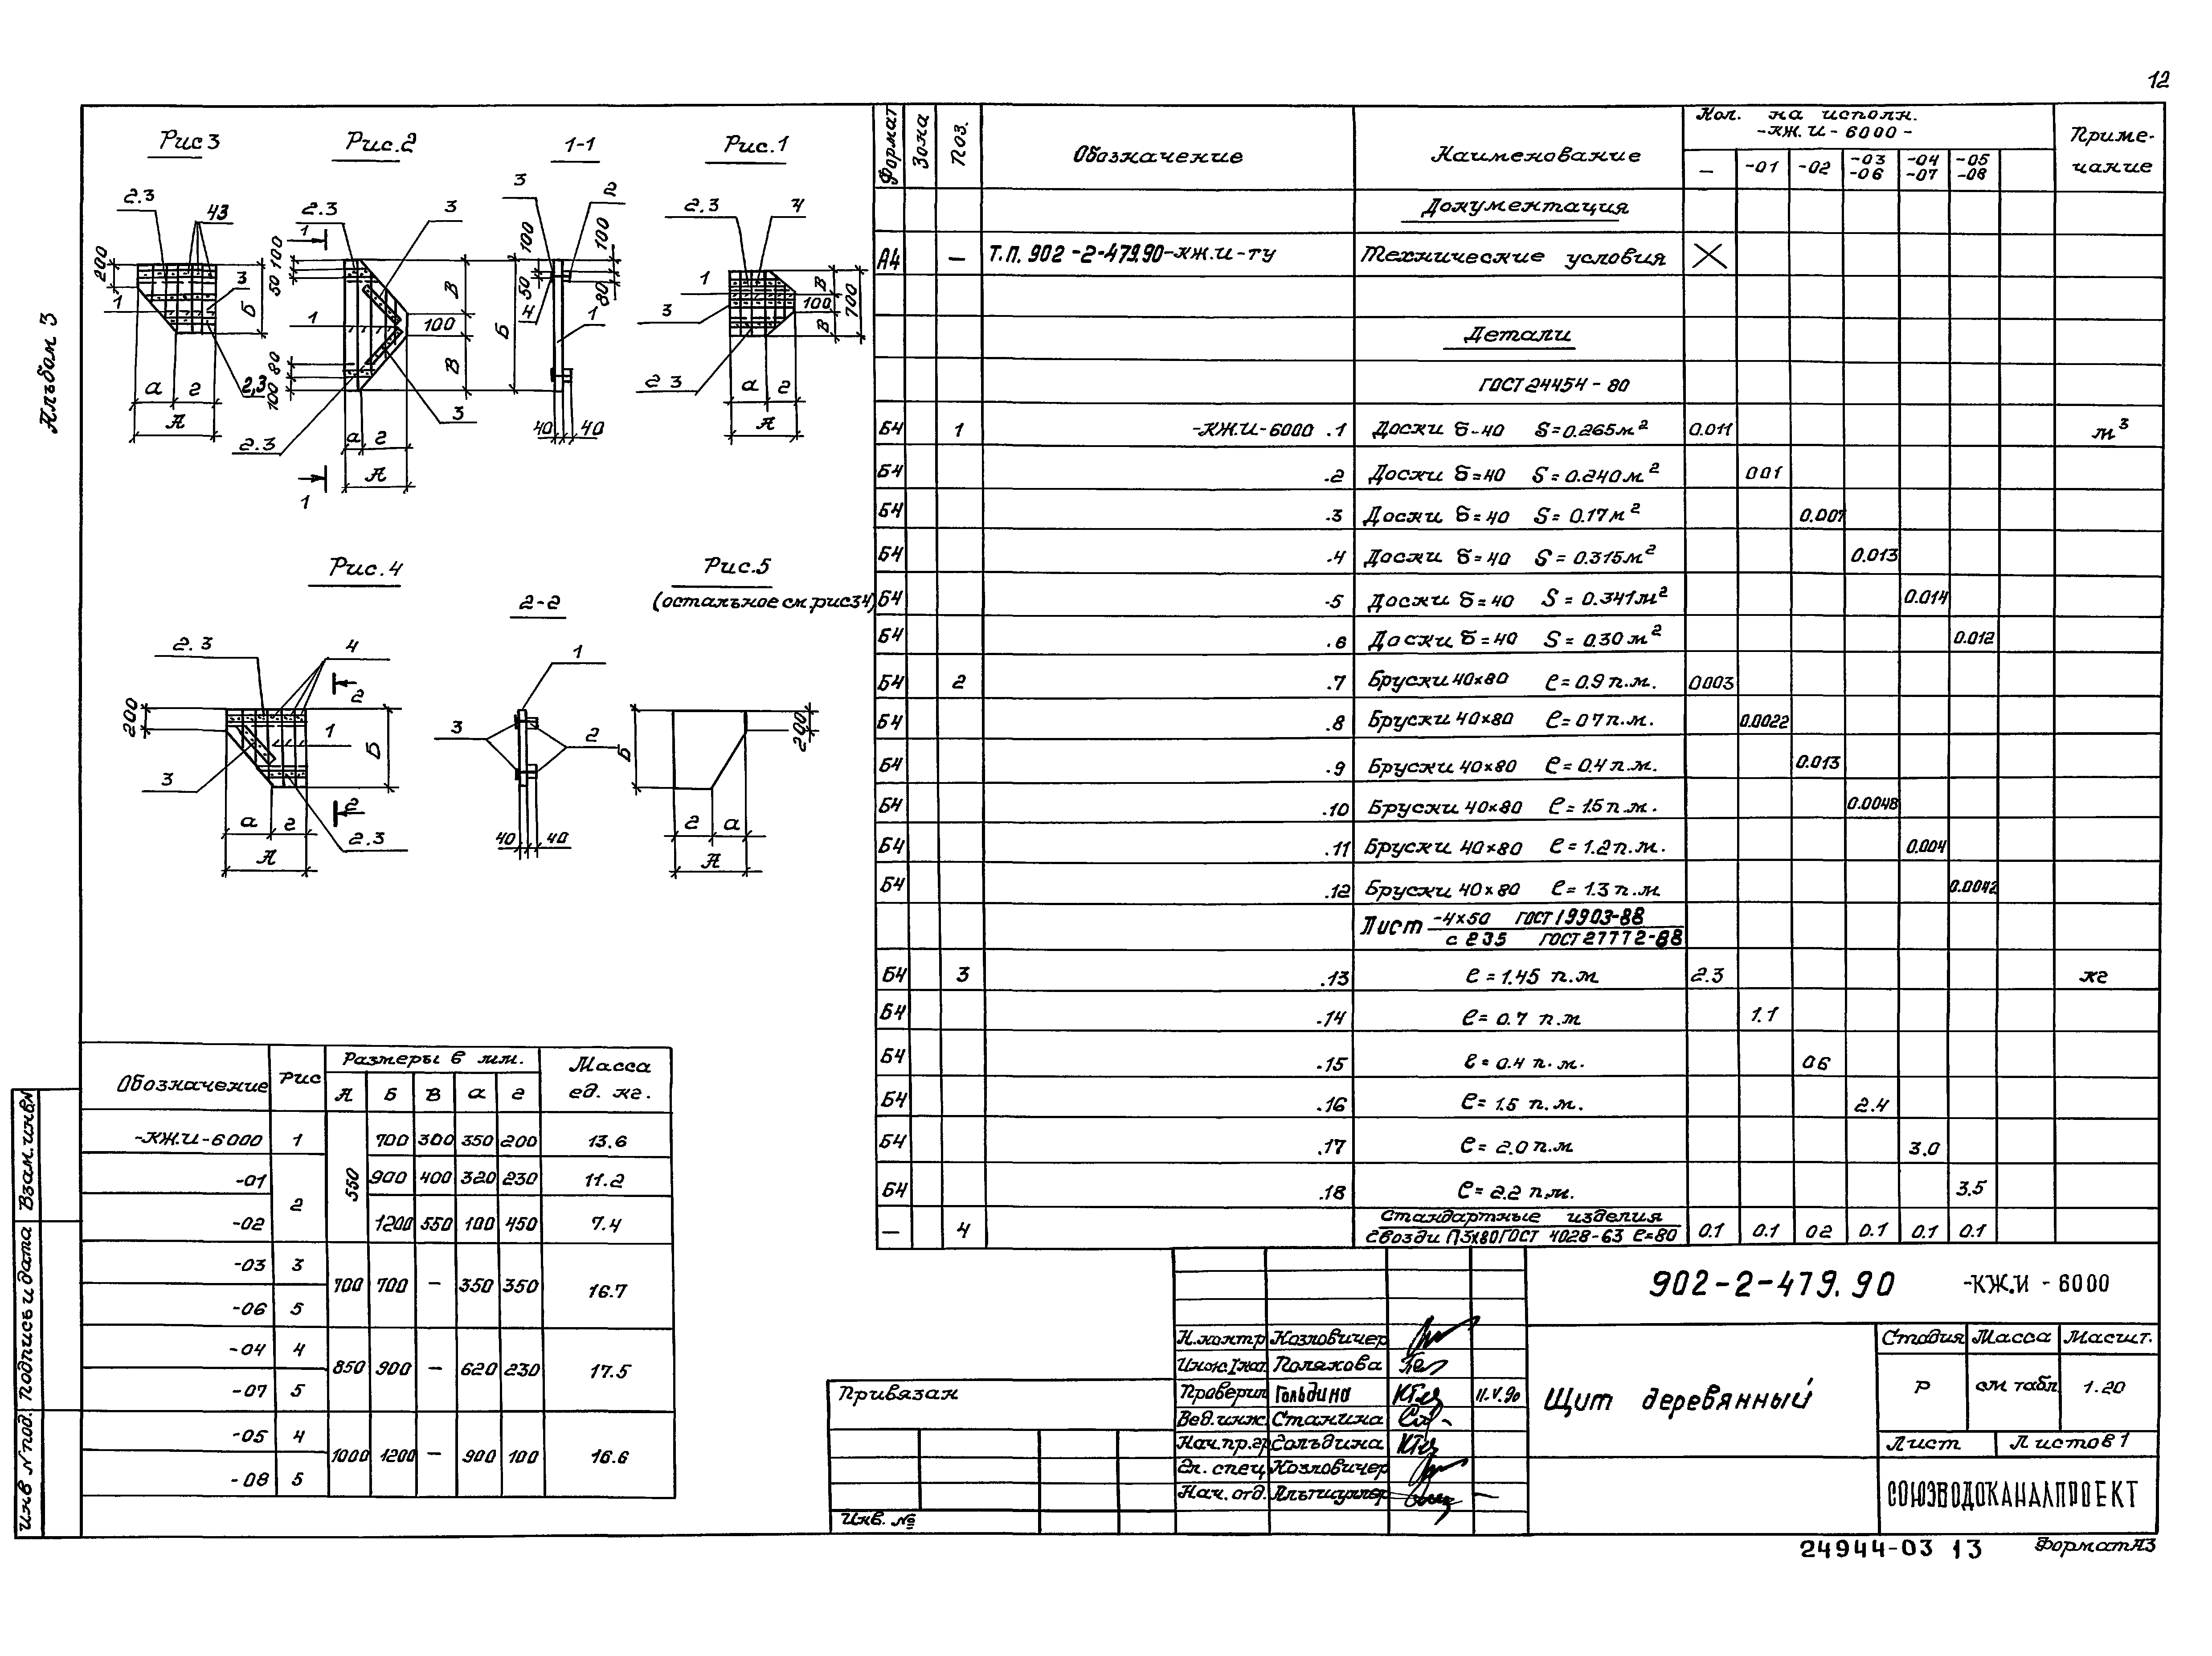 12
Альбом 3
Рис 3
Рис. 2
1-1
Рис. 1
2.3
43
200
3
1
Б
а
г
А
2,3
2.3
3
1
100
50
В
1
100
80
В
100
3
2.3
а
г
А
1
3
2
100
50
100
80
4
Б
1
40
40
2.3
4
1
3
В
100
700
В
2 3
а
г
А
Рис. 4
2-2
Рис. 5
(остальное см. рис 3 4)
2.3
4
2
200
1
Б
3
2
а
г
2.3
А
1
3
2
40
40
Б
200
г
а
А
Обозначение
Рис
Размеры в мм.
Масса ед. кг.
А Б В а г
-КЖ.И-6000 1 550 700 300 350 200 13.6
-01 2 900 400 320 230 11.2
-02 1200 550 100 450 7.4
-03 3 700 700 — 350 350 16.7
-06 5
-04 4 850 900 — 620 230 17.5
-07 5
-05 4 1000 1200 — 900 100 16.6
-08 5
Формат Зона Поз. Обозначение Наименование
Кол. на исполн.
-КЖ.И-6000-
— -01 -02 -03 -06 -04 -07 -05 -08
Приме-
чание
Документация
А4 — Т.П. 902-2-479.90-КЖ.И-ТУ Технические условия
Детали
ГОСТ 24454-80
Б4 1 -КЖ.И-6000 .1 Доски δ-40 S=0.265м² 0.011 м³
Б4 .2 Доски δ=40 S=0.240м² 001
Б4 .3 Доски δ=40 S=0.17м² 0.007
Б4 .4 Доски δ=40 S=0.315м² 0.013
Б4 .5 Доски δ=40 S=0.341м² 0.014
Б4 .6 Доски δ=40 S=0.30м² 0.012
Б4 2 .7 Бруски 40×80 ℓ=0.9 п.м. 0003
Б4 .8 Бруски 40×80 ℓ=07 п.м. 0.0022
Б4 .9 Бруски 40×80 ℓ=0.4 п.м. 0.013
Б4 .10 Бруски 40×80 ℓ=1.5 п.м. 0.0048
Б4 .11 Бруски 40×80 ℓ=1.2 п.м. 0.004
Б4 .12 Бруски 40×80 ℓ=1.3 п.м 0.0042
Лист -4×50 ГОСТ 19903-88
с 235 ГОСТ 27772-88
Б4 3 .13 ℓ=1.45 п.м 2.3 кг
Б4 .14 ℓ=0.7 п.м 1.1
Б4 .15 ℓ=0.4 п.м. 06
Б4 .16 ℓ=1.5 п.м. 2.4
Б4 .17 ℓ=2.0 п.м 3.0
Б4 .18 ℓ=2.2 п.м. 3.5
Стандартные изделия
— 4 Гвозди П3×80 ГОСТ 4028-63 ℓ=80 0.1 0.1 02 0.1 0.1 0.1
902-2-479.90 -КЖ.И-6000
Н.контр Козловичер
Инж. I кат. Полякова
Проверил Гольдина 11.V.90
Вед.инж. Станина
Нач.пр.гр Гольдина
Гл. спец. Козловичер
Нач. отд. Альтшуллер
Щит деревянный
Стадия Масса Масшт.
Р см табл. 1.20
Лист Листов 1
СОЮЗВОДОКАНАЛПРОЕКТ
Привязан
Инв. №
Взам.инв.№
Подпись и дата
Инв № подл.
24944-03 13
Формат А3